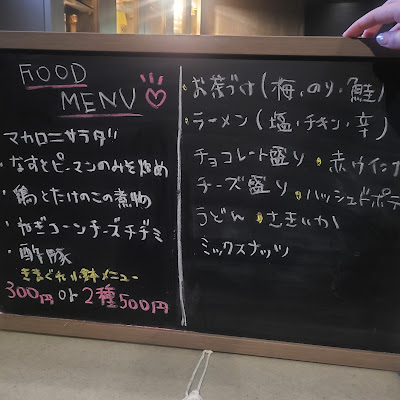 FOOD
MENU
マカロニサラダ
・なすとピーマンのみそ炒め
・鶏とたけのこの煮物
・ねぎコーンチーズチヂミ
・酢豚
きまぐれ小鉢メニュー
300円 or 2種500円
・お茶づけ(梅、のり・鮭)
・ラーメン(塩・チキン・辛)
チョコレート盛り ・赤ウインナ
チーズ盛り ・ハッシュドポテ
うどん ・さきいか
ミックスナッツ